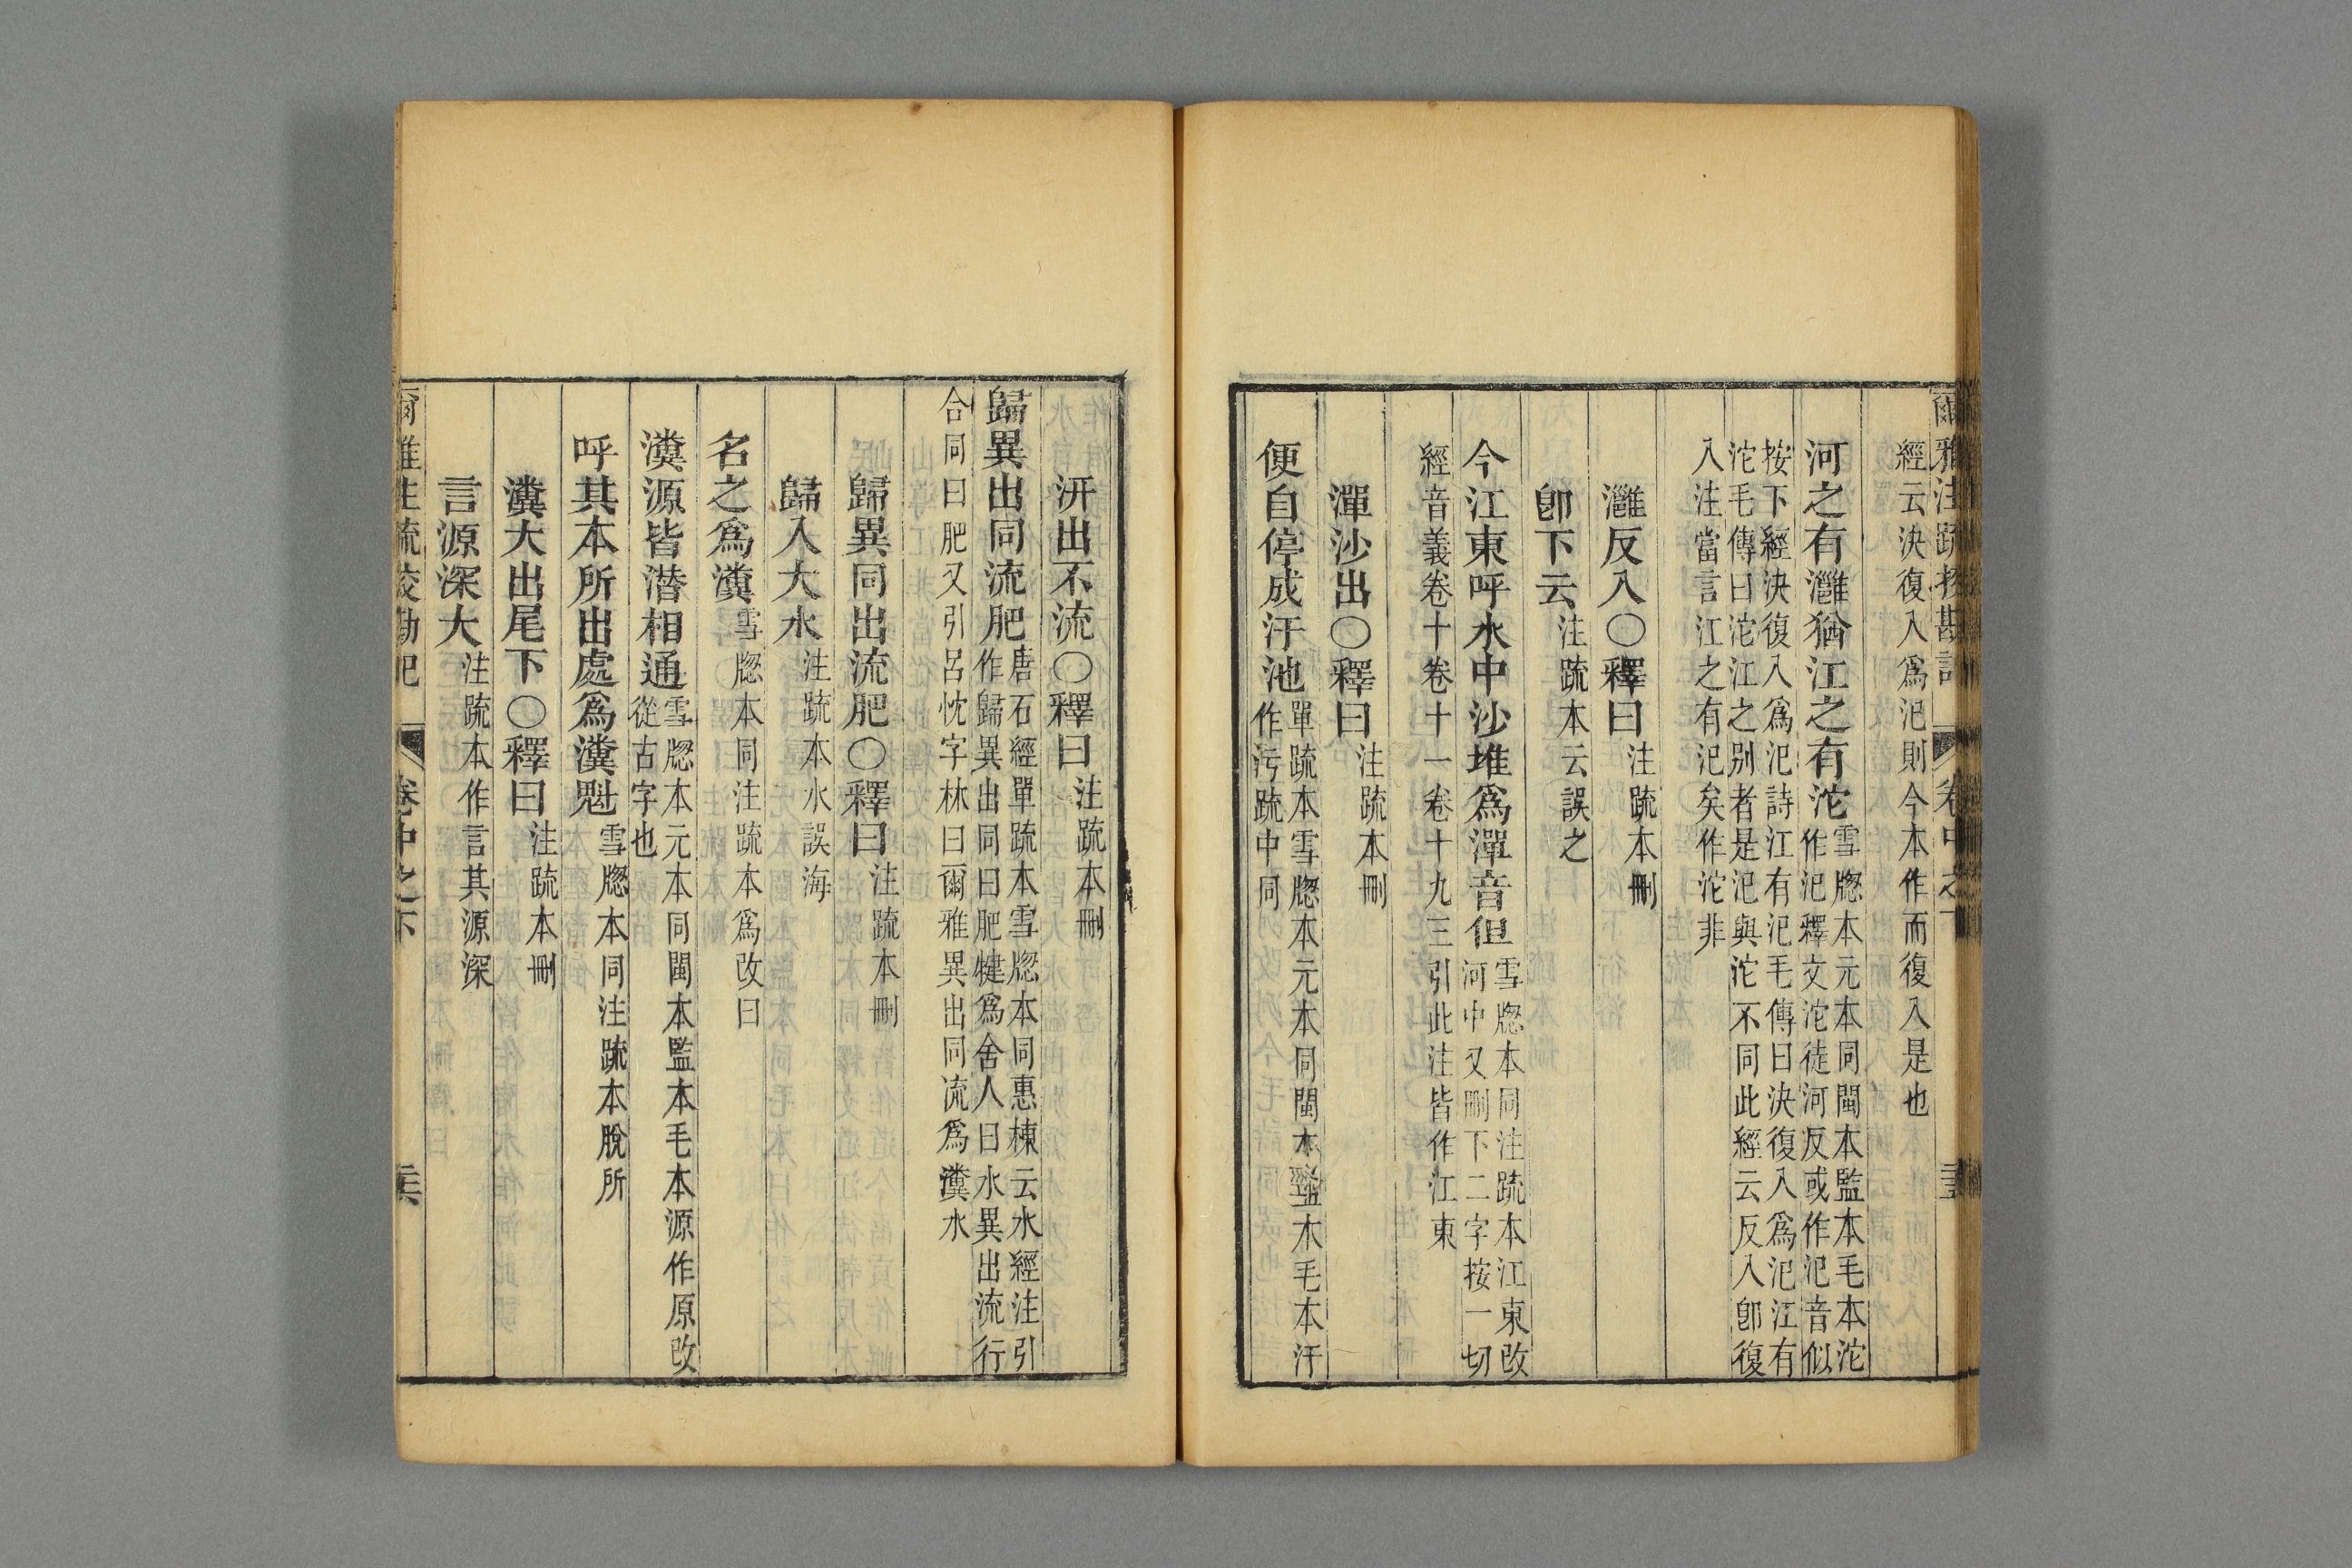 爾雅注疏挍勘記 卷中之下
經云決復入爲汜則今本作而復入是也
河之有灉猶江之有沱 雪牎本元本同閩本監本毛本沱
作汜釋文沱徒河反或作汜音似
按下經決復入爲汜詩江有汜毛傳曰決復入爲汜江有
沱毛傳曰沱江之別者是汜與沱不同此經云反入卽復
入注當言江之有汜矣作沱非
灉反入〇釋曰 注疏本刪
卽下云 注疏本云誤之
今江東呼水中沙堆爲潬音但 雪牎本同注疏本江東改
河中又刪下二字按一切
經音義卷十卷十一卷十九三引此注皆作江東
潬沙出〇釋曰 注疏本刪
便自停成汙池 單疏本雪牎本元本同閩本監本毛本汙
作污疏中同
汧出不流〇釋曰 注疏本刪
歸異出同流肥 唐石經單疏本雪牎本同惠棟云水經注引
作歸異出同曰肥犍爲舍人曰水異出流行
合同曰肥又引呂忱字林曰爾雅異出同流爲瀵水
歸異同出流肥〇釋曰 注疏本刪
歸入大水 注疏本水誤海
名之爲瀵 雪牎本同注疏本爲改曰
瀵源皆潛相通 雪牎本元本同閩本監本毛本源作原改
從古字也
呼其本所出處爲瀵魁 雪牎本同注疏本脫所
瀵大出尾下〇釋曰 注疏本刪
言源深大 注疏本作言其源深
爾雅注疏校勘記 卷中之下